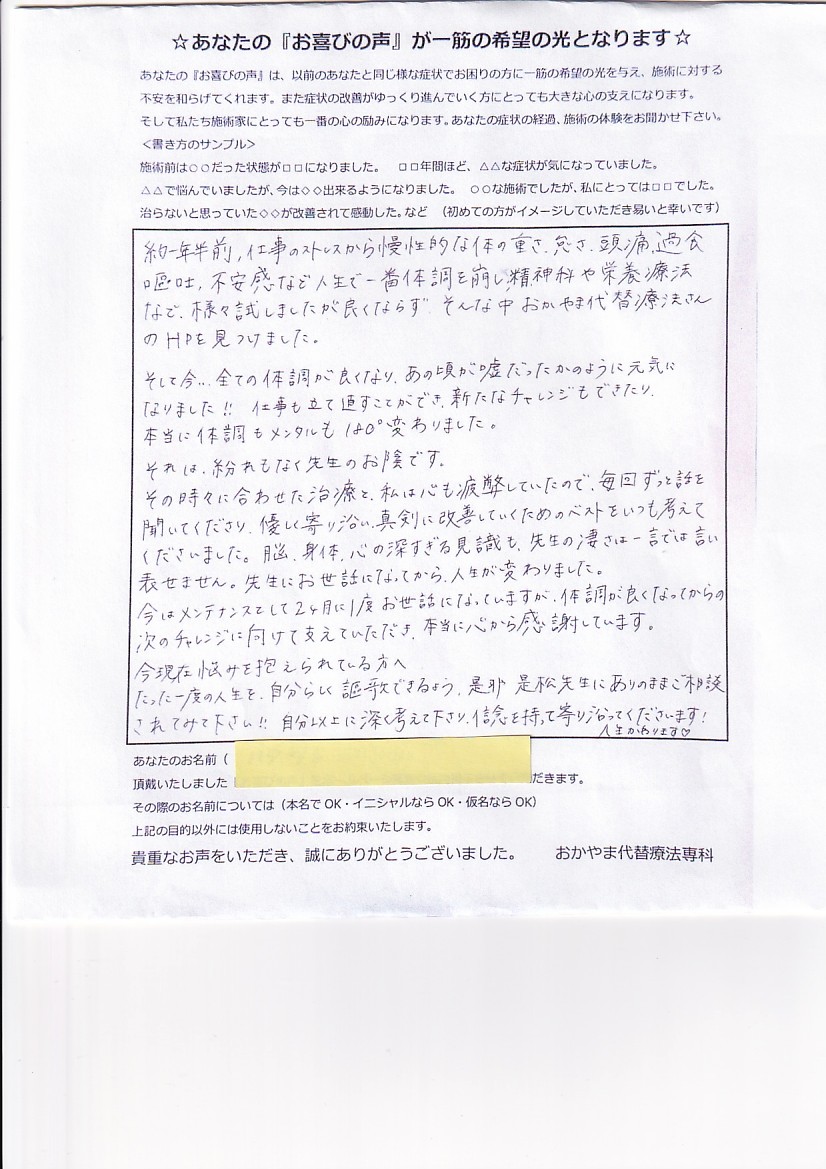 ☆あなたの『お喜びの声』が一筋の希望の光となります☆
あなたの『お喜びの声』は、以前のあなたと同じ様な症状でお困りの方に一筋の希望の光を与え、施術に対する
不安を和らげてくれます。また症状の改善がゆっくり進んでいく方にとっても大きな心の支えになります。
そして私たち施術家にとっても一番の心の励みになります。あなたの症状の経過、施術の体験をお聞かせ下さい。
＜書き方のサンプル＞
施術前は○○だった状態が□□になりました。　□□年間ほど、△△な症状が気になっていました。
△△で悩んでいましたが、今は◇◇出来るようになりました。　○○な施術でしたが、私にとっては□□でした。
治らないと思っていた◇◇が改善されて感動した。など　（初めての方がイメージしていただき易いと幸いです）
約一年半前、仕事のストレスから慢性的な体の重さ、怠さ、頭痛、過食
嘔吐、不安感など人生で一番体調を崩し、精神科や栄養療法
など、様々試しましたが良くならず そんな中 おかやま代替療法さん
のHPを見つけました。
そして今…全ての体調が良くなり、あの頃が嘘だったかのように元気に
なりました!! 仕事も立て直すことができ、新たなチャレンジもできたり、
本当に体調もメンタルも180°変わりました。
それは、紛れもなく先生のお陰です。
その時々に合わせた治療と、私は心も疲弊していたので、毎回ずっと話を
聞いてくださり、優しく寄り沿い、真剣に改善していくためのベストをいつも考えて
くださいました。脳、身体、心の深すぎる見識も、先生の凄さは一言では言い
表せません。先生にお世話になってから、人生が変わりました。
今はメンテナンスとして2ヶ月に1度お世話になっていますが、体調が良くなってからの
次のチャレンジに向けて支えていただき、本当に心から感謝しています。
今現在悩みを抱えられている方へ
たった一度の人生を、自分らしく謳歌できるよう、是非 是松先生にありのままご相談
されてみて下さい!! 自分以上に深く考えて下さり、信念を持って寄り沿ってくださいます!
人生かわります♡
あなたのお名前（
頂戴いたしました
だきます。
その際のお名前については（本名で OK・イニシャルなら OK・仮名なら OK）
上記の目的以外には使用しないことをお約束いたします。
貴重なお声をいただき、誠にありがとうございました。　　おかやま代替療法専科